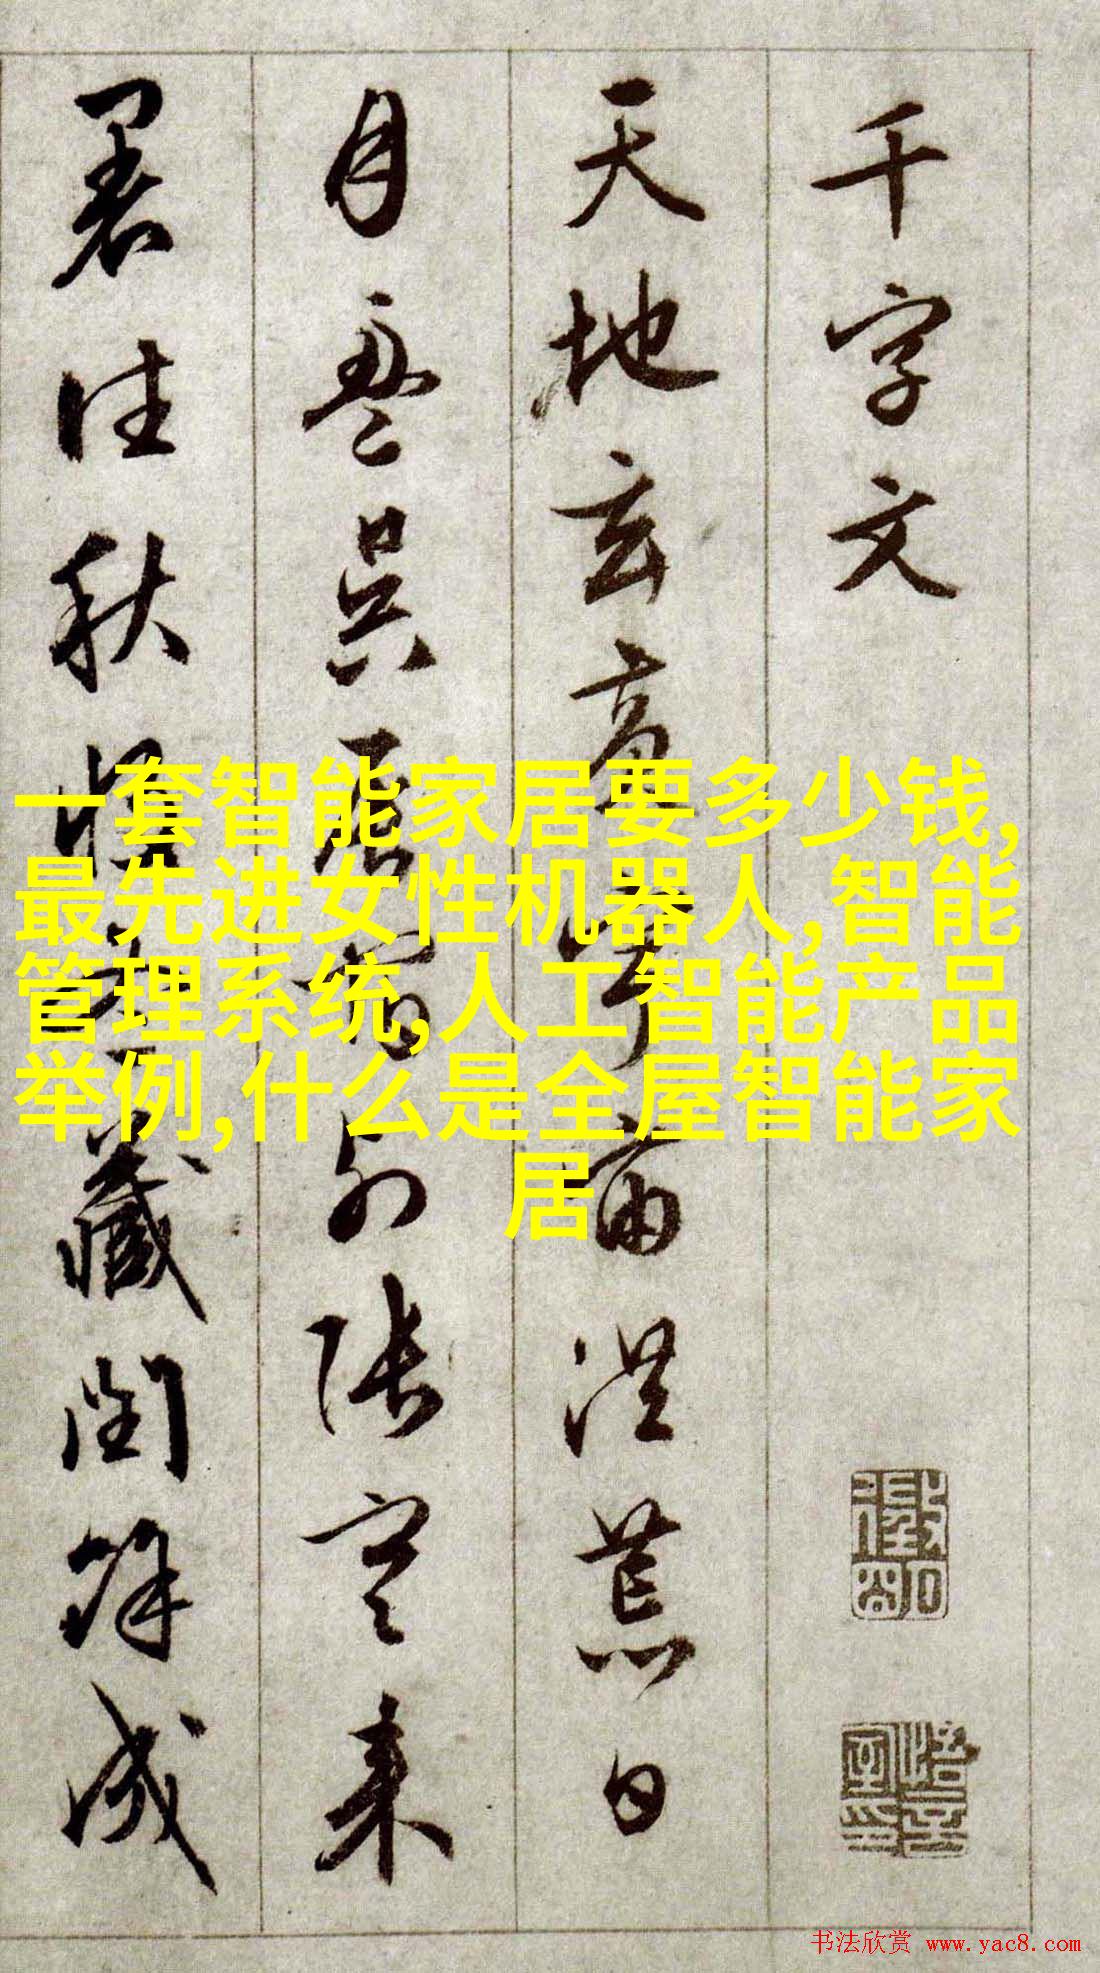 千字文
天地玄黄宇宙洪荒日
月盈昃辰宿列張寒来
暑往秋收冬藏閏餘成
一套智能家居要多少钱,
最先进女性机器人,智能
管理系统,人工智能产品
举例,什么是全屋智能家
居
书法欣赏 www.yac8.com